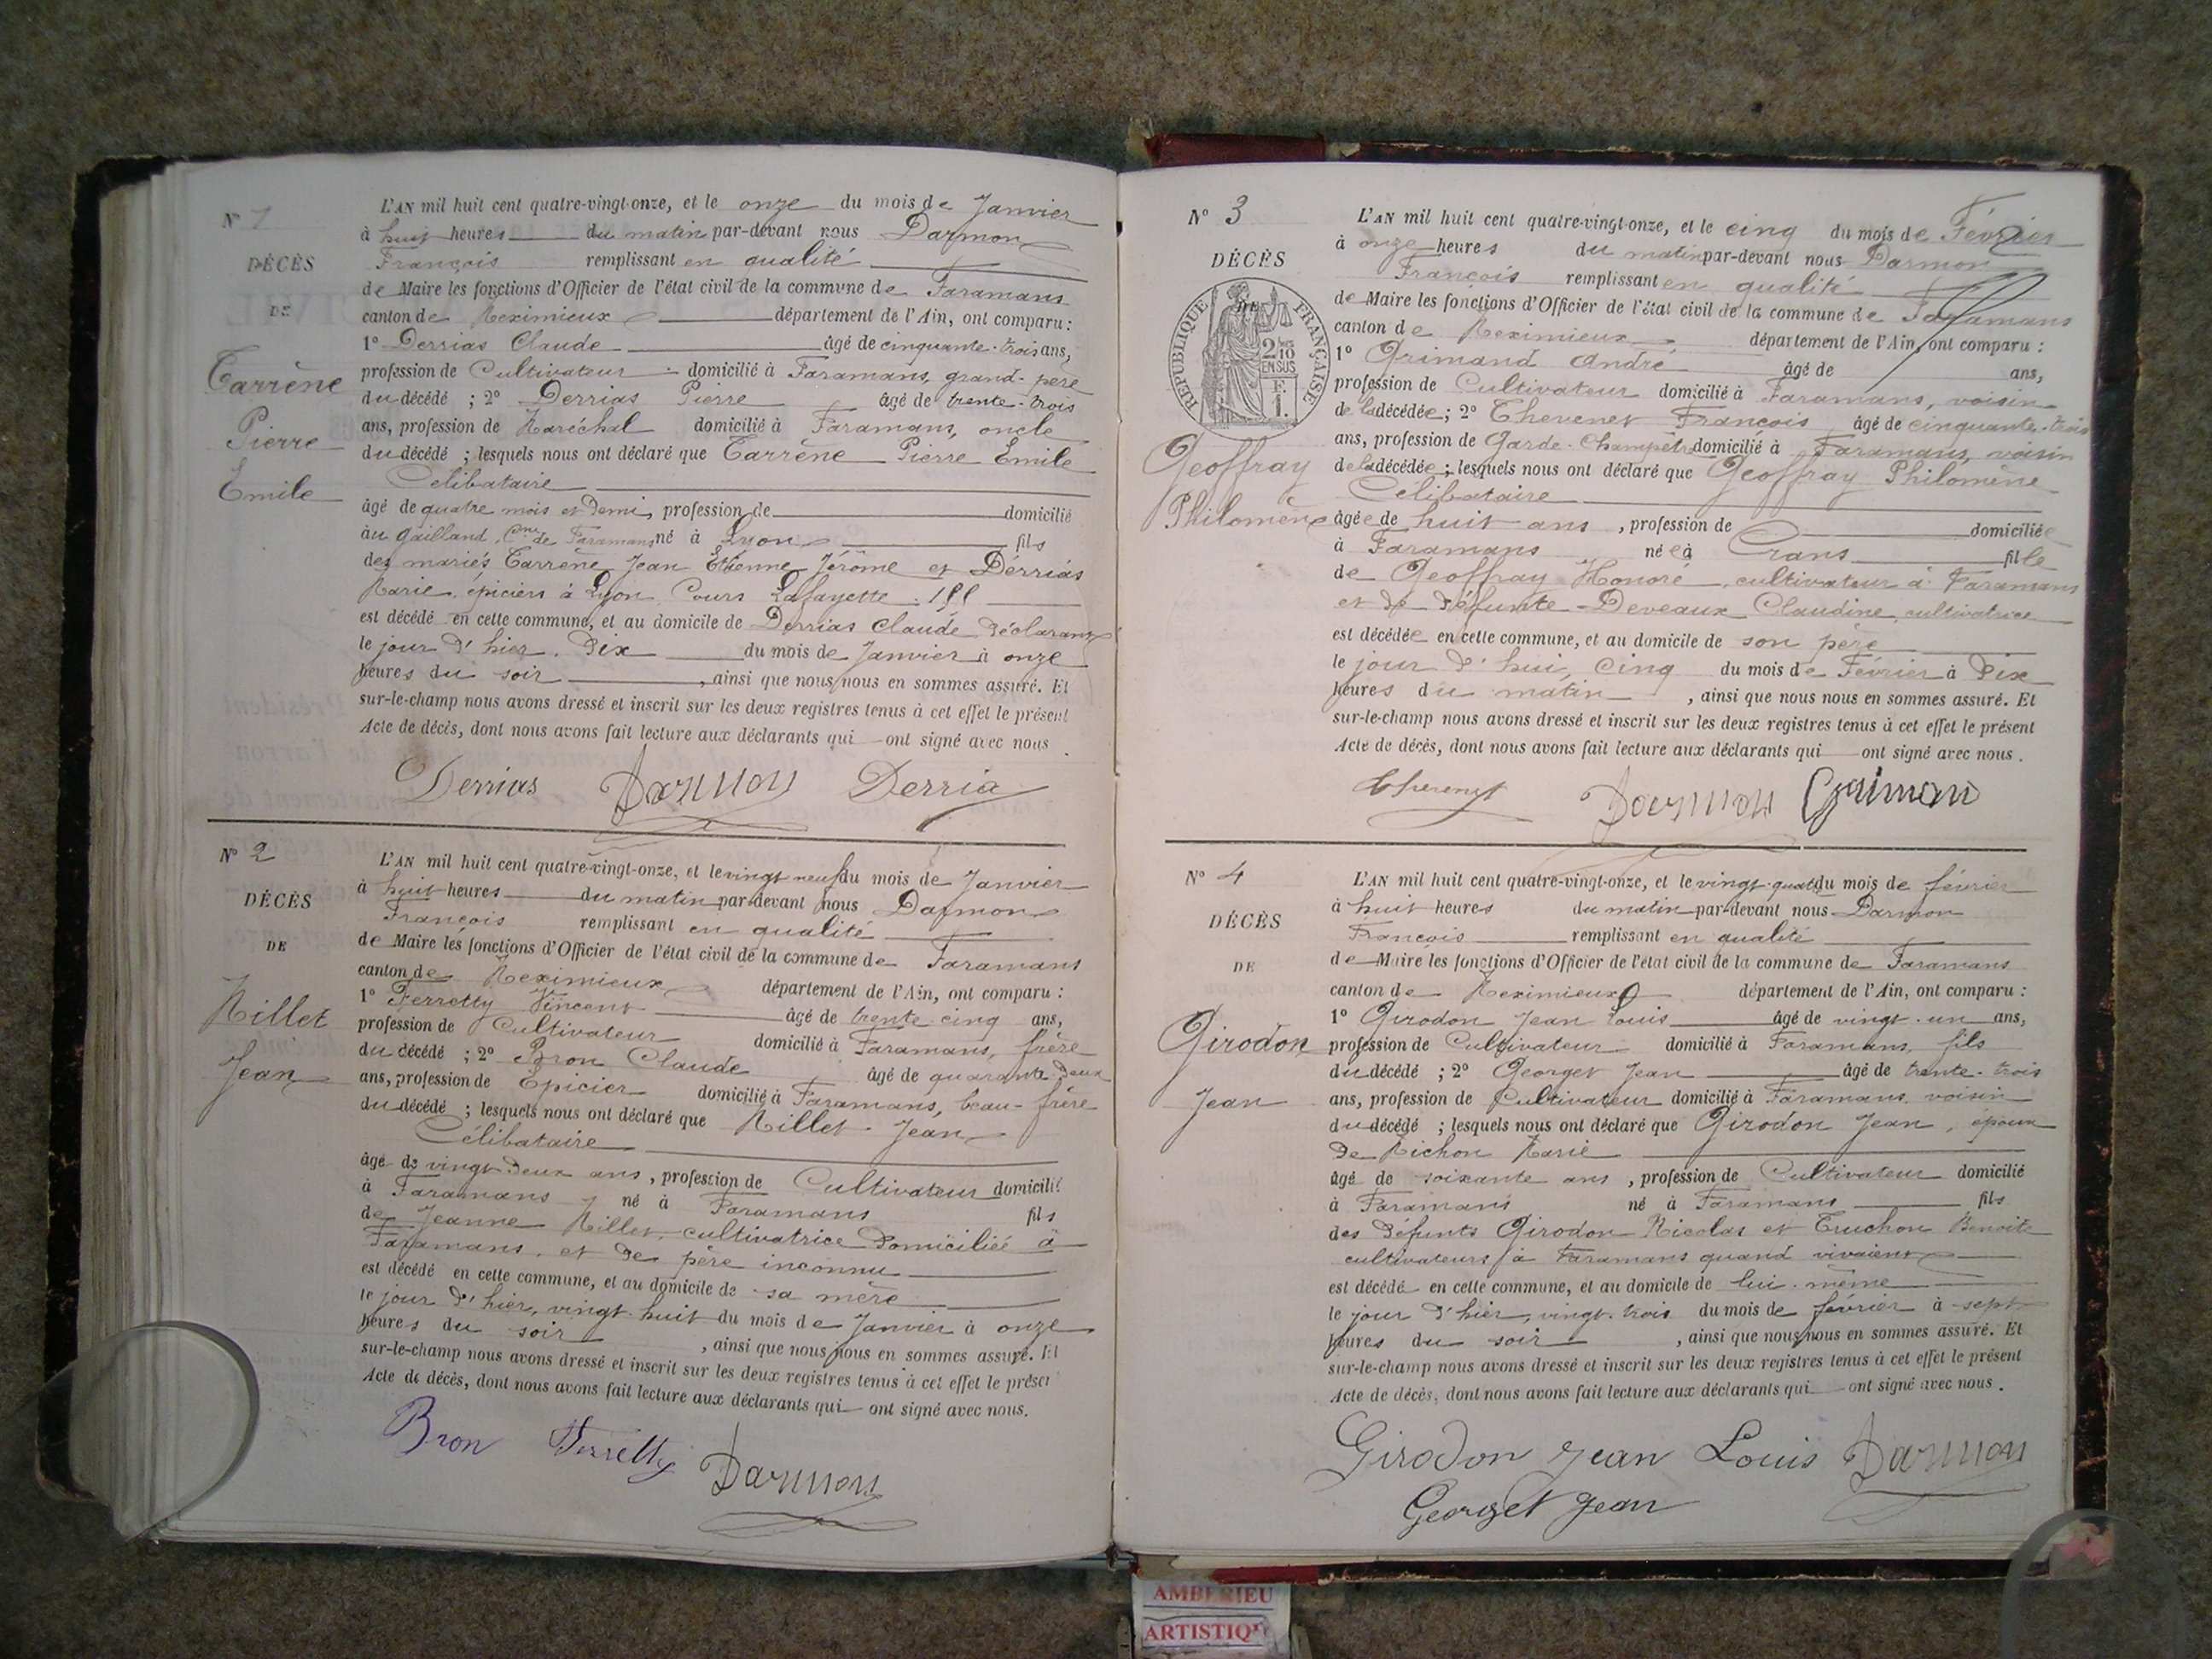 N° 1
DÉCÈS
DE
Carrène
Pierre
Emile
L'AN mil huit cent quatre-vingt-onze, et le onze du mois de Janvier
à huit heures du matin par-devant nous Darmon
François remplissant en qualité
de Maire les fonctions d'Officier de l'état civil de la commune de Faramans
canton de Meximieux département de l'Ain, ont comparu :
1° Derrias Claude âgé de cinquante-trois ans,
profession de Cultivateur domicilié à Faramans, grand-père
du décédé ; 2° Derrias Pierre âgé de trente-trois
ans, profession de Maréchal domicilié à Faramans, oncle
du décédé ; lesquels nous ont déclaré que Carrène Pierre Emile
Célibataire
âgé de quatre mois et demi, profession de domicilié
au Gailland, Cne de Faramans né à Lyon fils
des mariés Carrène Jean Etienne Jérôme et Dérrias
Marie, épiciers à Lyon, Cours Lafayette
est décédé en cette commune, et au domicile de Derrias Claude, déclarant
le jour d'hier, dix du mois de Janvier à onze
heures du soir, ainsi que nous nous en sommes assuré. Et
sur-le-champ nous avons dressé et inscrit sur les deux registres tenus à cet effet le présent
Acte de décès, dont nous avons fait lecture aux déclarants qui ont signé avec nous.
Derrias Darmon Derria
N° 2
DÉCÈS
DE
Millet
Jean
L'AN mil huit cent quatre-vingt-onze, et le vingt neuf du mois de Janvier
à huit heures du matin par-devant nous Darmon
François remplissant en qualité
de Maire les fonctions d'Officier de l'état civil de la commune de Faramans
canton de Meximieux département de l'Ain, ont comparu :
1° Ferretty Vincent âgé de trente-cinq ans,
profession de Cultivateur domicilié à Faramans, frère
du décédé ; 2° Bron Claude âgé de quarante-deux
ans, profession de Epicier domicilié à Faramans, beau-frère
du décédé ; lesquels nous ont déclaré que Millet Jean
Célibataire
âgé de vingt-deux ans, profession de Cultivateur domicilié
à Faramans né à Faramans fils
de Jeanne Millet, cultivatrice domiciliée à
Faramans, et de père inconnu
est décédé en cette commune, et au domicile de sa mère
le jour d'hier, vingt-huit du mois de Janvier à onze
heures du soir, ainsi que nous nous en sommes assuré. Et
sur-le-champ nous avons dressé et inscrit sur les deux registres tenus à cet effet le présent
Acte de décès, dont nous avons fait lecture aux déclarants qui ont signé avec nous.
Bron Ferretty Darmon
N° 3
DÉCÈS
DE
RÉPUBLIQUE FRANÇAISE
2/10
EN SUS
Geoffray
Philomène
L'AN mil huit cent quatre-vingt-onze, et le cinq du mois de Février
à onze heures du matin par-devant nous Darmon
François remplissant en qualité
de Maire les fonctions d'Officier de l'état civil de la commune de Faramans
canton de Meximieux département de l'Ain, ont comparu :
1° Grimand André âgé de ans,
profession de Cultivateur domicilié à Faramans, voisin
de la décédée ; 2° Thevenet François âgé de cinquante-trois
ans, profession de Garde-Champêtre domicilié à Faramans, voisin
de la décédée ; lesquels nous ont déclaré que Geoffray Philomène
Célibataire
âgée de huit ans, profession de domiciliée
à Faramans née à Crans fille
de Geoffray Honoré, cultivateur à Faramans
et de défunte Deveaux Claudine, cultivatrice
est décédée en cette commune, et au domicile de son père
le jour d'hui, cinq du mois de Février à dix
heures du matin, ainsi que nous nous en sommes assuré. Et
sur-le-champ nous avons dressé et inscrit sur les deux registres tenus à cet effet le présent
Acte de décès, dont nous avons fait lecture aux déclarants qui ont signé avec nous.
Thevenet Darmon Grimand
N° 4
DÉCÈS
DE
Girodon
Jean
L'AN mil huit cent quatre-vingt-onze, et le vingt-quatre du mois de février
à huit heures du matin par-devant nous Darmon
François remplissant en qualité
de Maire les fonctions d'Officier de l'état civil de la commune de Faramans
canton de Meximieux département de l'Ain, ont comparu :
1° Girodon Jean Louis âgé de vingt-un ans,
profession de Cultivateur domicilié à Faramans, fils
du décédé ; 2° Georget Jean âgé de trente-trois
ans, profession de Cultivateur domicilié à Faramans, voisin
du décédé ; lesquels nous ont déclaré que Girodon Jean, époux
de Michon Marie
âgé de soixante ans, profession de Cultivateur domicilié
à Faramans né à Faramans fils
des défunts Girodon Nicolas et Truchon Benoite
cultivateurs à Faramans quand vivaient
est décédé en cette commune, et au domicile de lui-même
le jour d'hier, vingt-trois du mois de février à sept
heures du soir, ainsi que nous nous en sommes assuré. Et
sur-le-champ nous avons dressé et inscrit sur les deux registres tenus à cet effet le présent
Acte de décès, dont nous avons fait lecture aux déclarants qui ont signé avec nous.
Girodon Jean Louis Darmon
Georget Jean
AMBERIEU
ARTISTIQUE